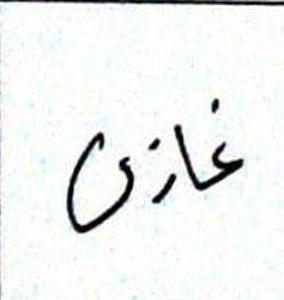 غازی